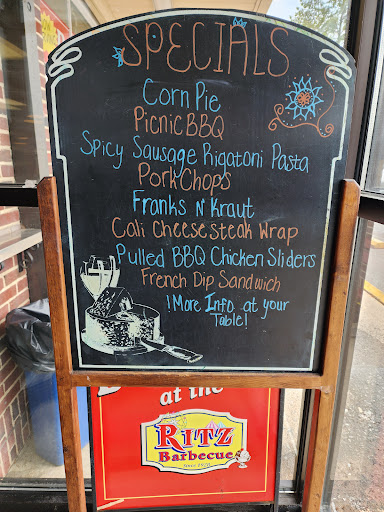 SPECIALS
Corn Pie
Picnic BBQ
Spicy Sausage Rigatoni Pasta
Pork Chops
Franks N' Kraut
Cali Cheesesteak Wrap
Pulled BBQ Chicken Sliders
French Dip Sandwich
!More Info at your
Table!
at the
RITZ
Barbecue